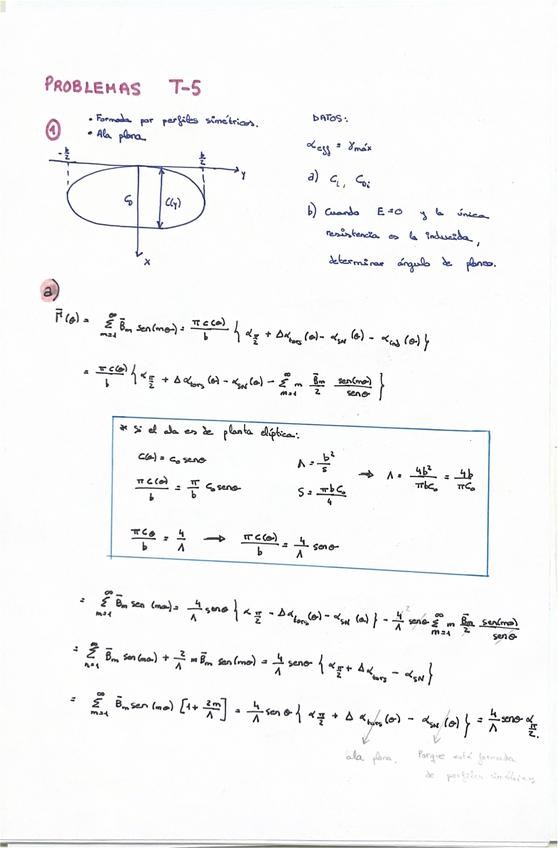 PROBLEMAS T-5
① • Formada por perfiles simétricos.
• Ala plana
-b/2 b/2 y
C₀ C(y)
x
DATOS:
α_eff = γmáx
a) C_L, C_Di
b) Cuando E=0 y la única
resistencia es la inducida,
determinar ángulo de planeo.
a)
Γ̄(θ) = Σ_{m=1}^{∞} B̄m sen(mθ) = πc(θ)/b { α_{π/2} + Δα_tors(θ) - α_SN(θ) - α_ind(θ) }
= πc(θ)/b { α_{π/2} + Δα_tors(θ) - α_SN(θ) - Σ_{m=1}^{∞} m B̄m/2 sen(mθ)/senθ }
* Si el ala es de planta elíptica:
C(θ) = C₀ senθ
πc(θ)/b = π/b C₀ senθ
Λ = b²/S
S = πbC₀/4
→ Λ = 4b²/πbC₀ = 4b/πC₀
πC₀/b = 4/Λ → πc(θ)/b = 4/Λ senθ
= Σ_{m=1}^{∞} B̄m sen(mθ) = 4/Λ senθ { α_{π/2} - Δα_tors(θ) - α_SN(θ) } - 4/Λ senθ Σ_{m=1}^{∞} m B̄m/2 sen(mθ)/senθ
= Σ_{n=1}^{∞} B̄m sen(mθ) + 2/Λ m B̄m sen(mθ) = 4/Λ senθ { α_{π/2} + Δα_tors - α_SN }
= Σ_{m=1}^{∞} B̄m sen(mθ) [1 + 2m/Λ] = 4/Λ senθ { α_{π/2} + Δα_tors(θ) - α_SN(θ) } = 4/Λ senθ α_{π/2}.
ala plana. Porque está formada
de perfiles simétricos